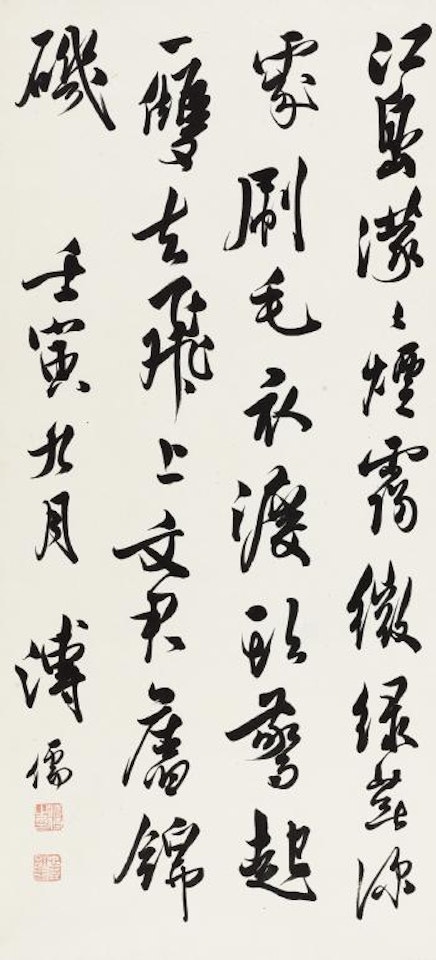 江島濛〻煙靄微綠蕪深
處刷毛衣渡頭驚起
一雙去飛上文君舊錦
磯 壬寅九月 溥儒